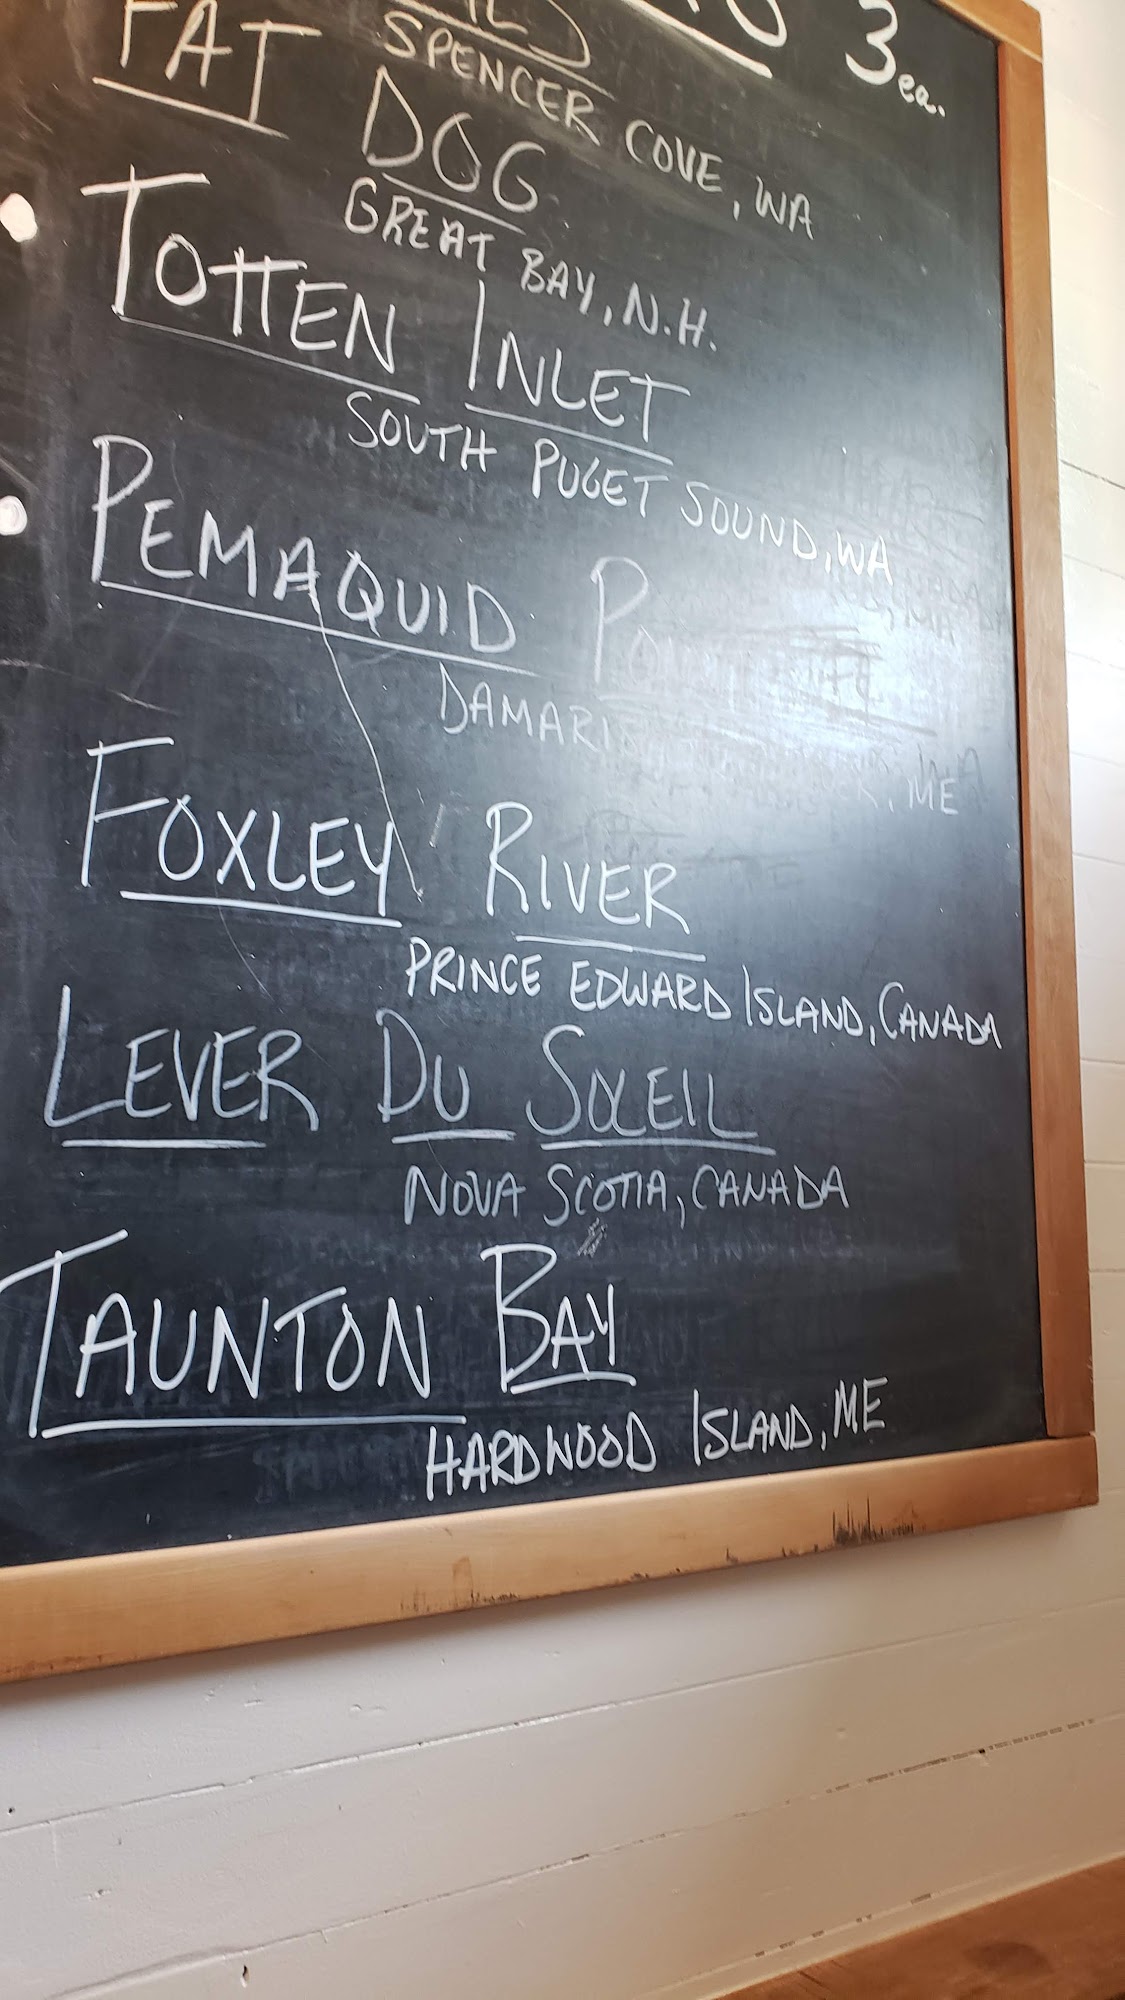 3 ea.
SPENCER COVE, WA
FAT DOG
GREAT BAY, N.H.
TOTTEN INLET
SOUTH PUGET SOUND, WA
PEMAQUID
, ME
FOXLEY RIVER
PRINCE EDWARD ISLAND, CANADA
LEVER DU SOLEIL
NOVA SCOTIA, CANADA
TAUNTON BAY
HARDWOOD ISLAND, ME